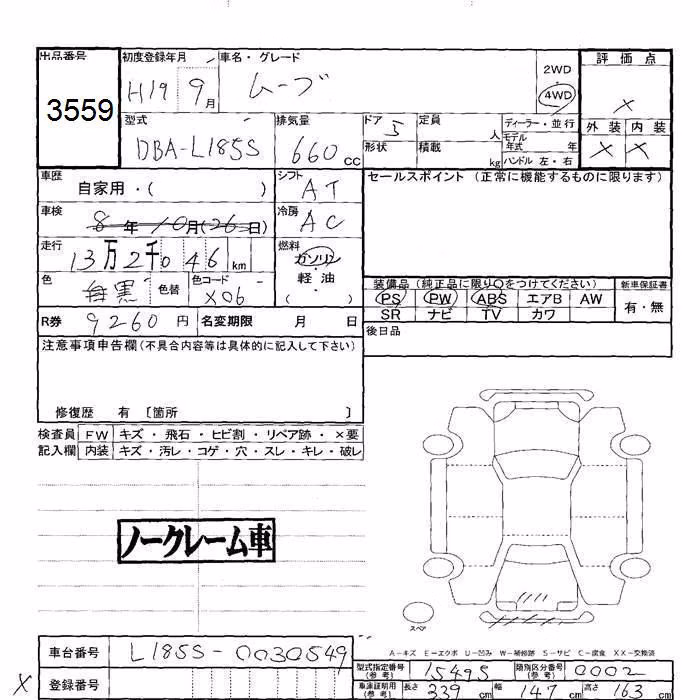 出品番号
3559
初度登録年月
H19 9月
車名・グレード
ムーブ
2WD
4WD
評価点
×
外装 内装
× ×
型式
DBA-L185S
排気量
660 cc
ドア 5
形状
定員 人
積載 kg
ディーラー・並行
モデル年式 年
ハンドル 左・右
車歴
自家用・( )
シフト
AT
車検
8年10月(26日)
冷房
AC
走行
13万2千046 km
燃料
ガソリン
軽油
( )
色
黒
色替
色コード
X06
R券 9260 円
名変期限 月 日
セールスポイント (正常に機能するものに限ります)
装備品(純正品に限り○をつけてください)
PS PW ABS エアB AW
SR ナビ TV カワ
新車保証書
有・無
後日品
注意事項申告欄(不具合内容等は具体的に記入して下さい)
修復歴 有 〔箇所 〕
検査員記入欄
FW キズ・飛石・ヒビ割・リペア跡・×要
内装 キズ・汚レ・コゲ・穴・スレ・キレ・破レ
ノークレーム車
スペア
A-キズ E-エクボ U-凹み W-補修跡 S-サビ C-腐食 XX-交換済
車台番号 L185S-0030549
× 登録番号
型式指定番号(参考) 15495
類別区分番号(参考) 0002
車庫証明用(参考) 長さ 339 cm 幅 147 cm 高さ 163 cm